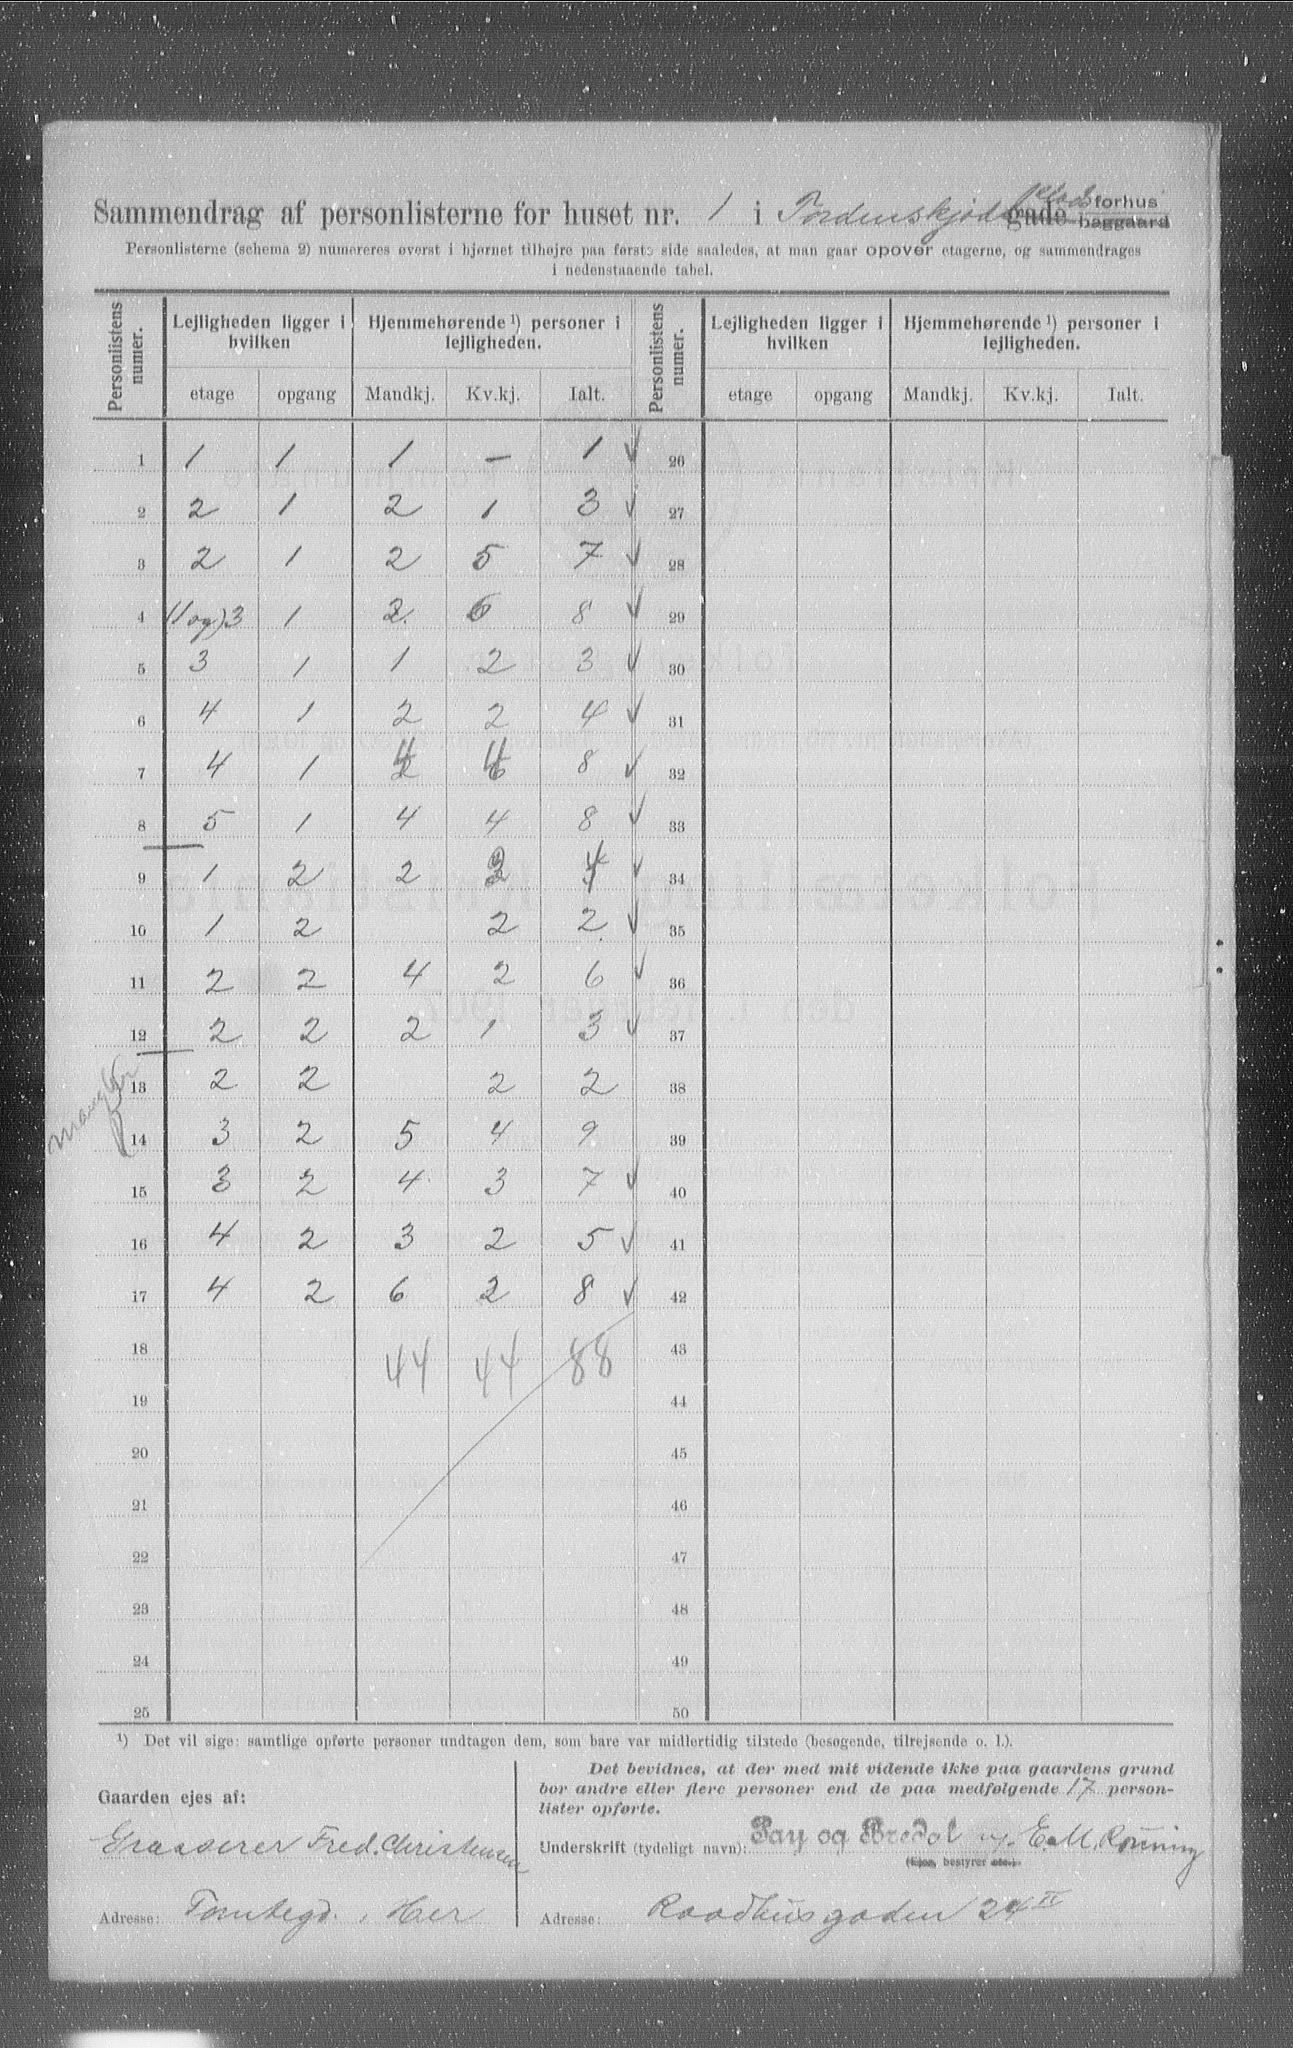 Sammendrag af personlisterne for huset nr. 1 i Tordenskjolds plads gade forhus baggaard
Personlisterne (schema 2) numereres øverst i hjørnet tilhøjre paa første side saaledes, at man gaar opover etagerne, og sammendrages
i nedenstaaende tabel.
Personlistens numer. Lejligheden ligger i hvilken Hjemmehørende ¹) personer i lejligheden. Personlistens numer. Lejligheden ligger i hvilken Hjemmehørende ¹) personer i lejligheden.
etage opgang Mandkj. Kv.kj. Ialt. etage opgang Mandkj. Kv.kj. Ialt.
1 1 1 1 – 1 ✓ 26
2 2 1 2 1 3 ✓ 27
3 2 1 2 5 7 ✓ 28
4 (1 og) 3 1 2 6 8 ✓ 29
5 3 1 1 2 3 ✓ 30
6 4 1 2 2 4 ✓ 31
7 4 1 4 4 8 ✓ 32
8 5 1 4 4 8 ✓ 33
9 1 2 2 2 4 ✓ 34
10 1 2 2 2 ✓ 35
11 2 2 4 2 6 ✓ 36
12 2 2 2 1 3 ✓ 37
mangler
13 2 2 2 2 38
14 3 2 5 4 9 39
15 3 2 4 3 7 ✓ 40
16 4 2 3 2 5 ✓ 41
17 4 2 6 2 8 ✓ 42
18 44 44 88 43
19 44
20 45
21 46
22 47
23 48
24 49
25 50
¹) Det vil sige: samtlige opførte personer undtagen dem, som bare var midlertidig tilstede (besøgende, tilrejsende o. l.).
Gaarden ejes af:
Grosserer Fred. Christensen
Adresse: Tomtegd. , Her
Det bevidnes, at der med mit vidende ikke paa gaardens grund
bor andre eller flere personer end de paa medfølgende 17 person-
lister opførte.
Underskrift (tydeligt navn): Pay og Bredal v/. E.M. Rönning
(Ejer, bestyrer etc.)
Adresse: Raadhusgaden 24 II